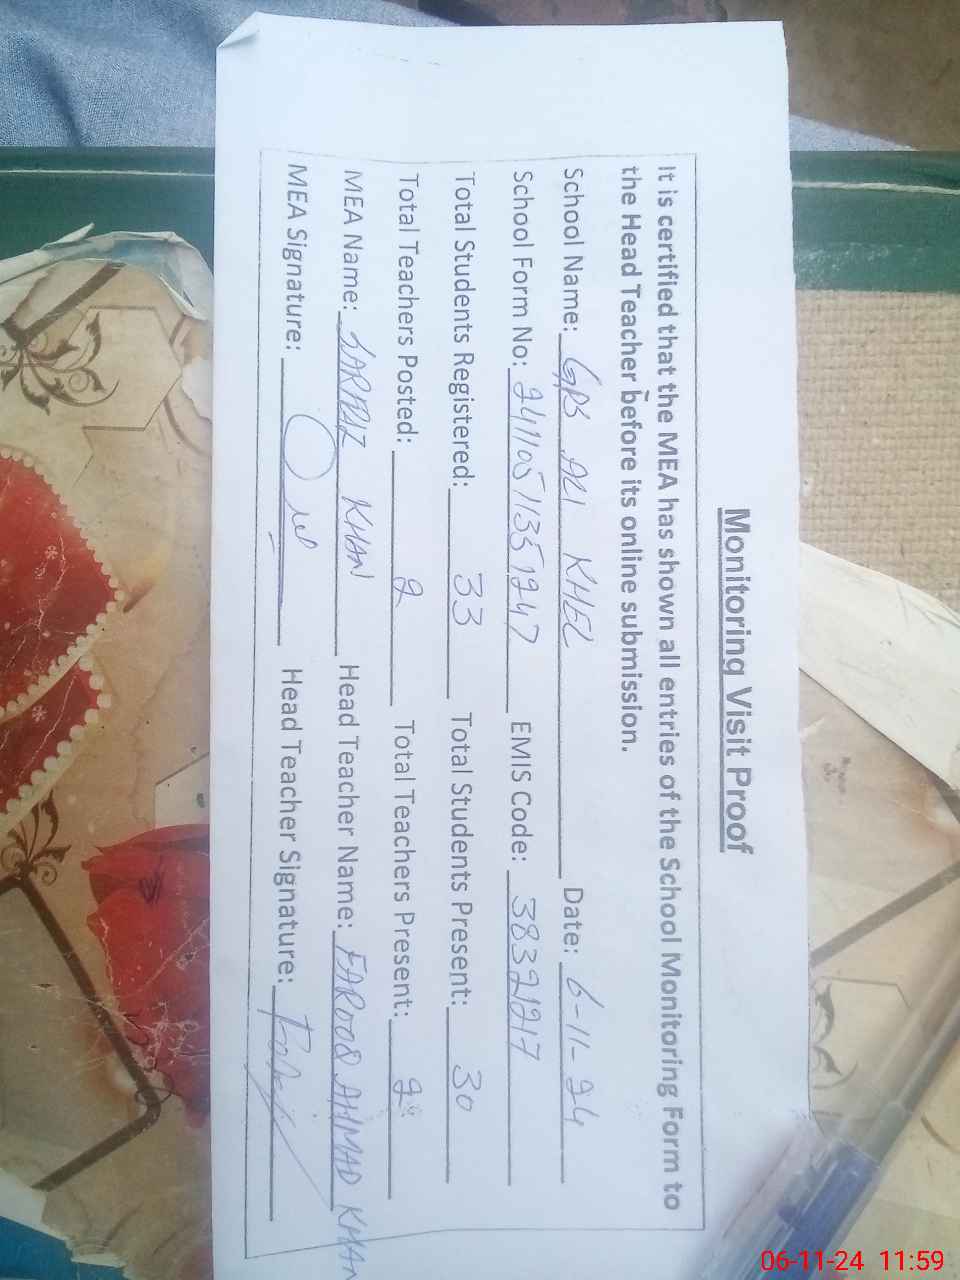 Monitoring Visit Proof
It is certified that the MEA has shown all entries of the School Monitoring Form to
the Head Teacher before its online submission.
School Name: GPS ALI KHEL Date: 6-11-24
School Form No: 241105113351247 EMIS Code:
Total Students Registered: 33 Total Students Present: 30
Total Teachers Posted: 2 Total Teachers Present: 2
MEA Name: SARFRAZ KHAN Head Teacher Name: FAROOQ AHMAD KHAN
MEA Signature: Head Teacher Signature:
06-11-24 11:59